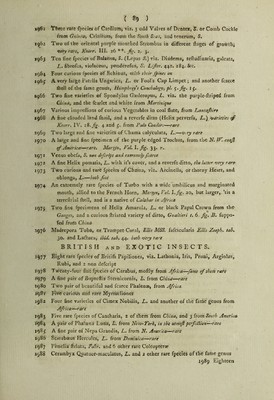 ( 89 )
1961 Three rare species of Cardium, viz. 3 odd Valves of Deaxes, S. or Comb Cockle from Guinea, Cristatum, from the South Seas, and venetum, S.
1962 Two of the striated purple mouthed Stromboi in different stages of growth; very rare, Knorr. III. 26 **. fig. 2. 3.
1963 Ten fine species of Balatina, S. (Lepas &) viz. Diadema, testudinaria, galeata, L. florida, violacea, ponderosa, S. Lister. 442. 284. &c.
1964 Four curious species of Echinus, with their spines on
1965 A very large Patella Ungarica, L. or Fool's Cap Limpet; and another scarce shell of the same genus, Humphrey's Conchology, pl. 5. fig. 15.
1966 Two fine varieties of Spondylus Gæderopus, L. viz. the purple-striped from China, and the scarlet and white from Martinique
1967 Various impressions of curious Vegetables in coal slate, from Lancashire
1968 A fine clouded livid snail, and a reverse ditto (Helix perversa, L.) varieties of Knorr, IV. 28. fig. 4 and 5. from Pulo Condor—rare
1969 Two large and fine varieties of Chama calyculata, L.—very rare
1970 A large and fine specimen of the purple edged Trochus, from the N. W. coast of America—rare. Martyn, Vol. I. fig. 33. c.
1971 Venus obesa, S. nov descript and extremely scarce
1972 A fine Helix pomatia, L. with it's cover, and a reverse ditto, the latter very rare
1973 Two curious and rare species of Chama, viz. Aculeatta, or thorny Heart, and oblonga, L.—both fine
1974 An extremely rare species of Turbo with a wide umbilicus and marginated mouth, allied to the French Horn, Martyn, Vol. I. fig. 20, but larger, 'tis a terrestrial shell, and is a native of Calabar in Africa
1975 Two fine specimens of Helix Amarula, L. or black Papal Crown from the Ganges, and a curious striated variety of ditto, Gualtieri t. 6. fig. B. supposed from China
1976 Madrepora Tuba, or Trumpet Coral, Ellis MSS. fascicularis Ellis Zooph. tab. 30. and Lathens, ibid. tab. 44. both very rare
BRITISH and EXOTIC INSECTS.
1977 Eight rare species of British Papiliones, viz. Lathonia, Iris, Pruni, Argiolus, Rubi, and 2 non descript
1978 Twenty-four fine species of Carabus, mostly from Africa—some of them rare
1979 A fine pair of Buprestis sternicornis, L. from China—rare
1980 Two pair of beautiful and scarce Phalænæ, from Africa
1981 Five curious and rare Myrmelianes
1982 Four fine varieties of Cimex Nobilis, L. and another of the same genus from Africa—rare
1983 Five rare species of Cantharis, 2 of them from China, and 3 from South America
1984 A pair of Phalænæ Luna, L. from New-York, in the utmost perfection—rare
1985 A fine pair of Nepa Grandis, L. from N. America—rare
1986 Scarabæus Hercules, L. from Dominica—rare
1987 Pimelia striata, Fabr. and 6 other rare Coleopteræ
1988 Cerambyx Quatuor-maculatus, L. and 2 other rare species of the same genus
1989 Eighteen